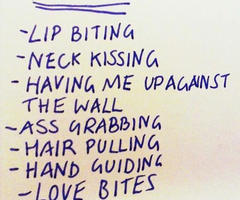 -LIP BITING
-NECK KISSING
-HAVING ME UP AGAINST
THE WALL
-ASS GRABBING
-HAIR PULLING
-HAND GUIDING
-LOVE BITES